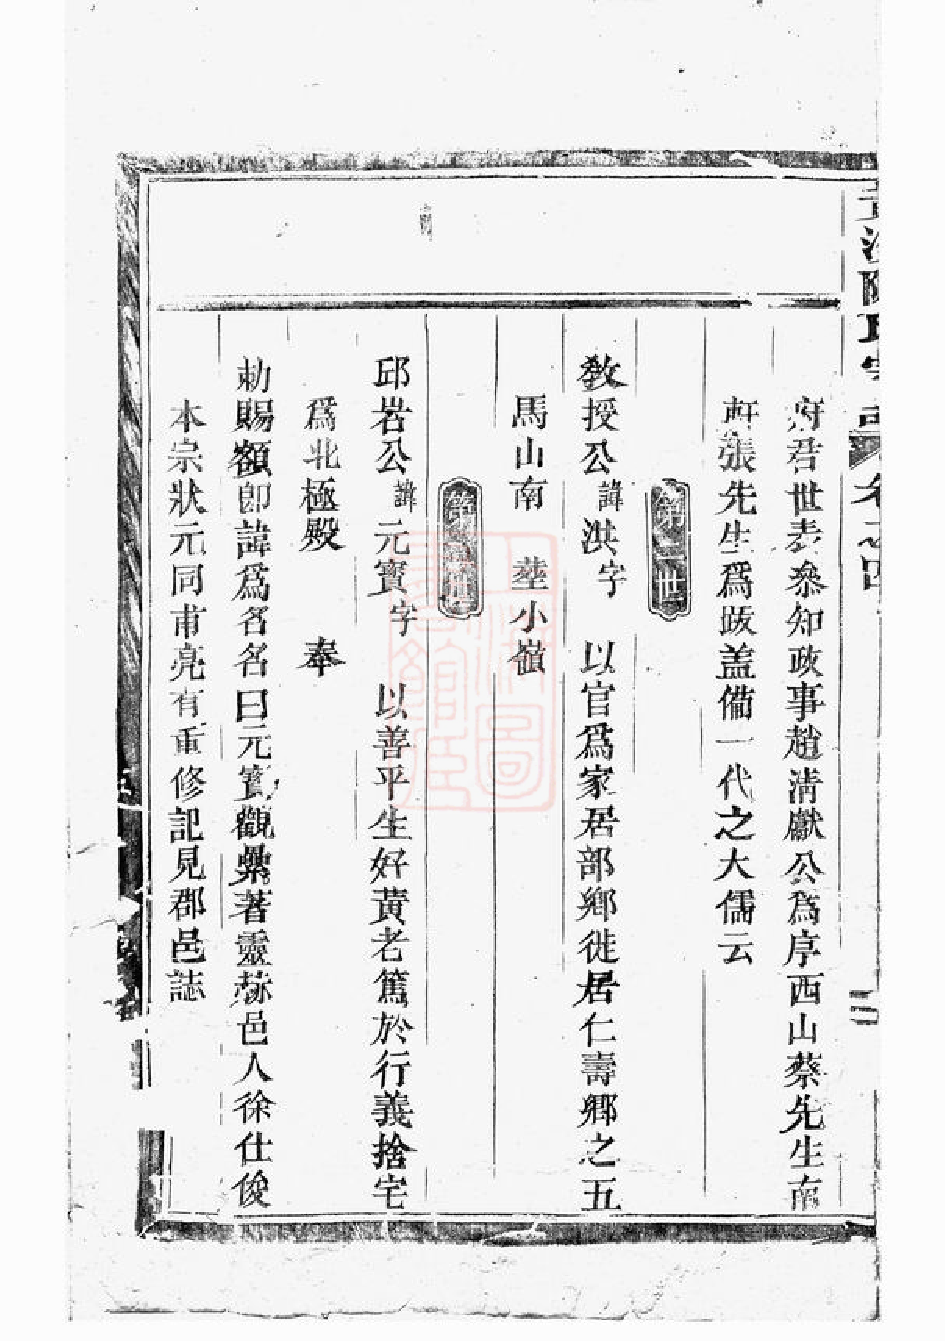 陳氏宗
卷之四
二
府君世表叅知政事趙淸獻公爲序西山蔡先生南
軒張先生爲跋盖備一代之大儒云
第二世
敎授公諱淇字 以官爲家居部鄉徙居仁壽鄉之五
馬山南 塟小嶺
第三世
邱岩公諱元寳字 以善平生好黃老篤於行義捨宅
爲北極殿 奉
勅賜額即諱爲名名曰元寳觀㬎著靈赫邑人徐仕俊
本宗狀元同甫亮有重修記見郡邑誌
上海圖書館藏